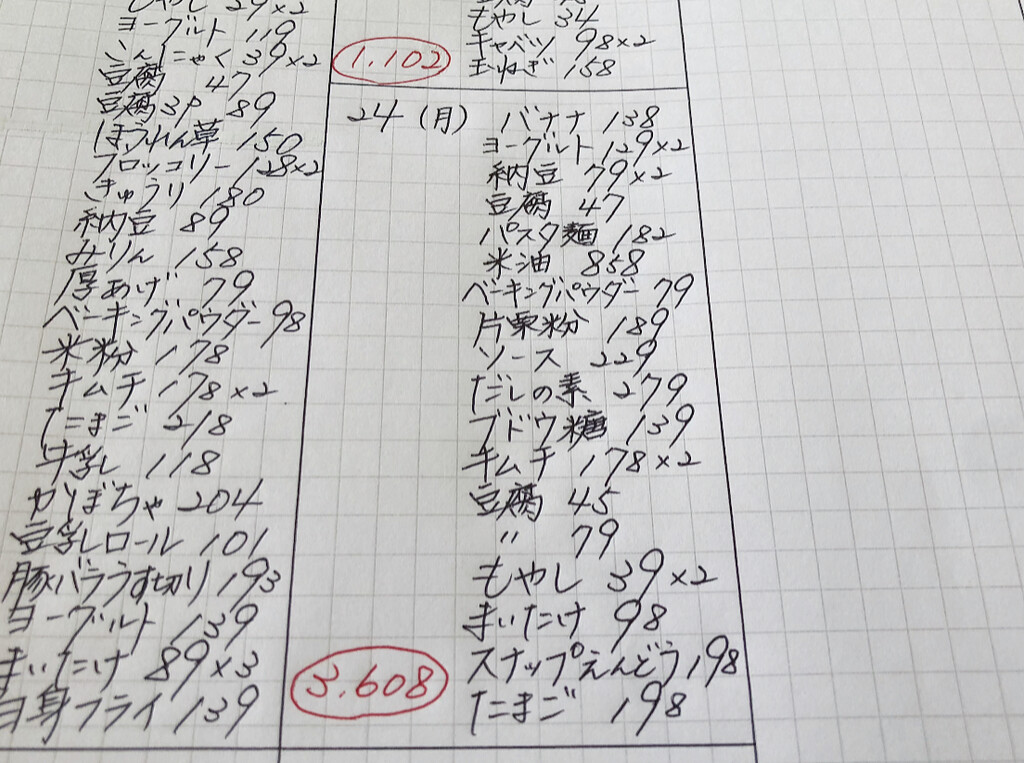 もやし 29×2
ヨーグルト 119
こんにゃく 39×2
豆腐 47
豆腐3P 89
ほうれん草 150
ブロッコリー 128×2
きゅうり 180
納豆 89
みりん 158
厚あげ 79
ベーキングパウダー 98
米粉 178
キムチ 178×2
たまご 218
牛乳 118
かぼちゃ 204
豆乳ロール 101
豚バラうす切り 193
ヨーグルト 139
まいたけ 89×3
白身フライ 139
もやし 34
キャベツ 98×2
1.102 玉ねぎ 158
24(月) バナナ 138
ヨーグルト 129×2
納豆 79×2
豆腐 47
パスタ麺 182
米油 858
ベーキングパウダー 79
片栗粉 189
ソース 229
だしの素 279
ブドウ糖 139
キムチ 178×2
豆腐 45
〃 79
もやし 39×2
まいたけ 98
3.608 スナップえんどう 198
たまご 198